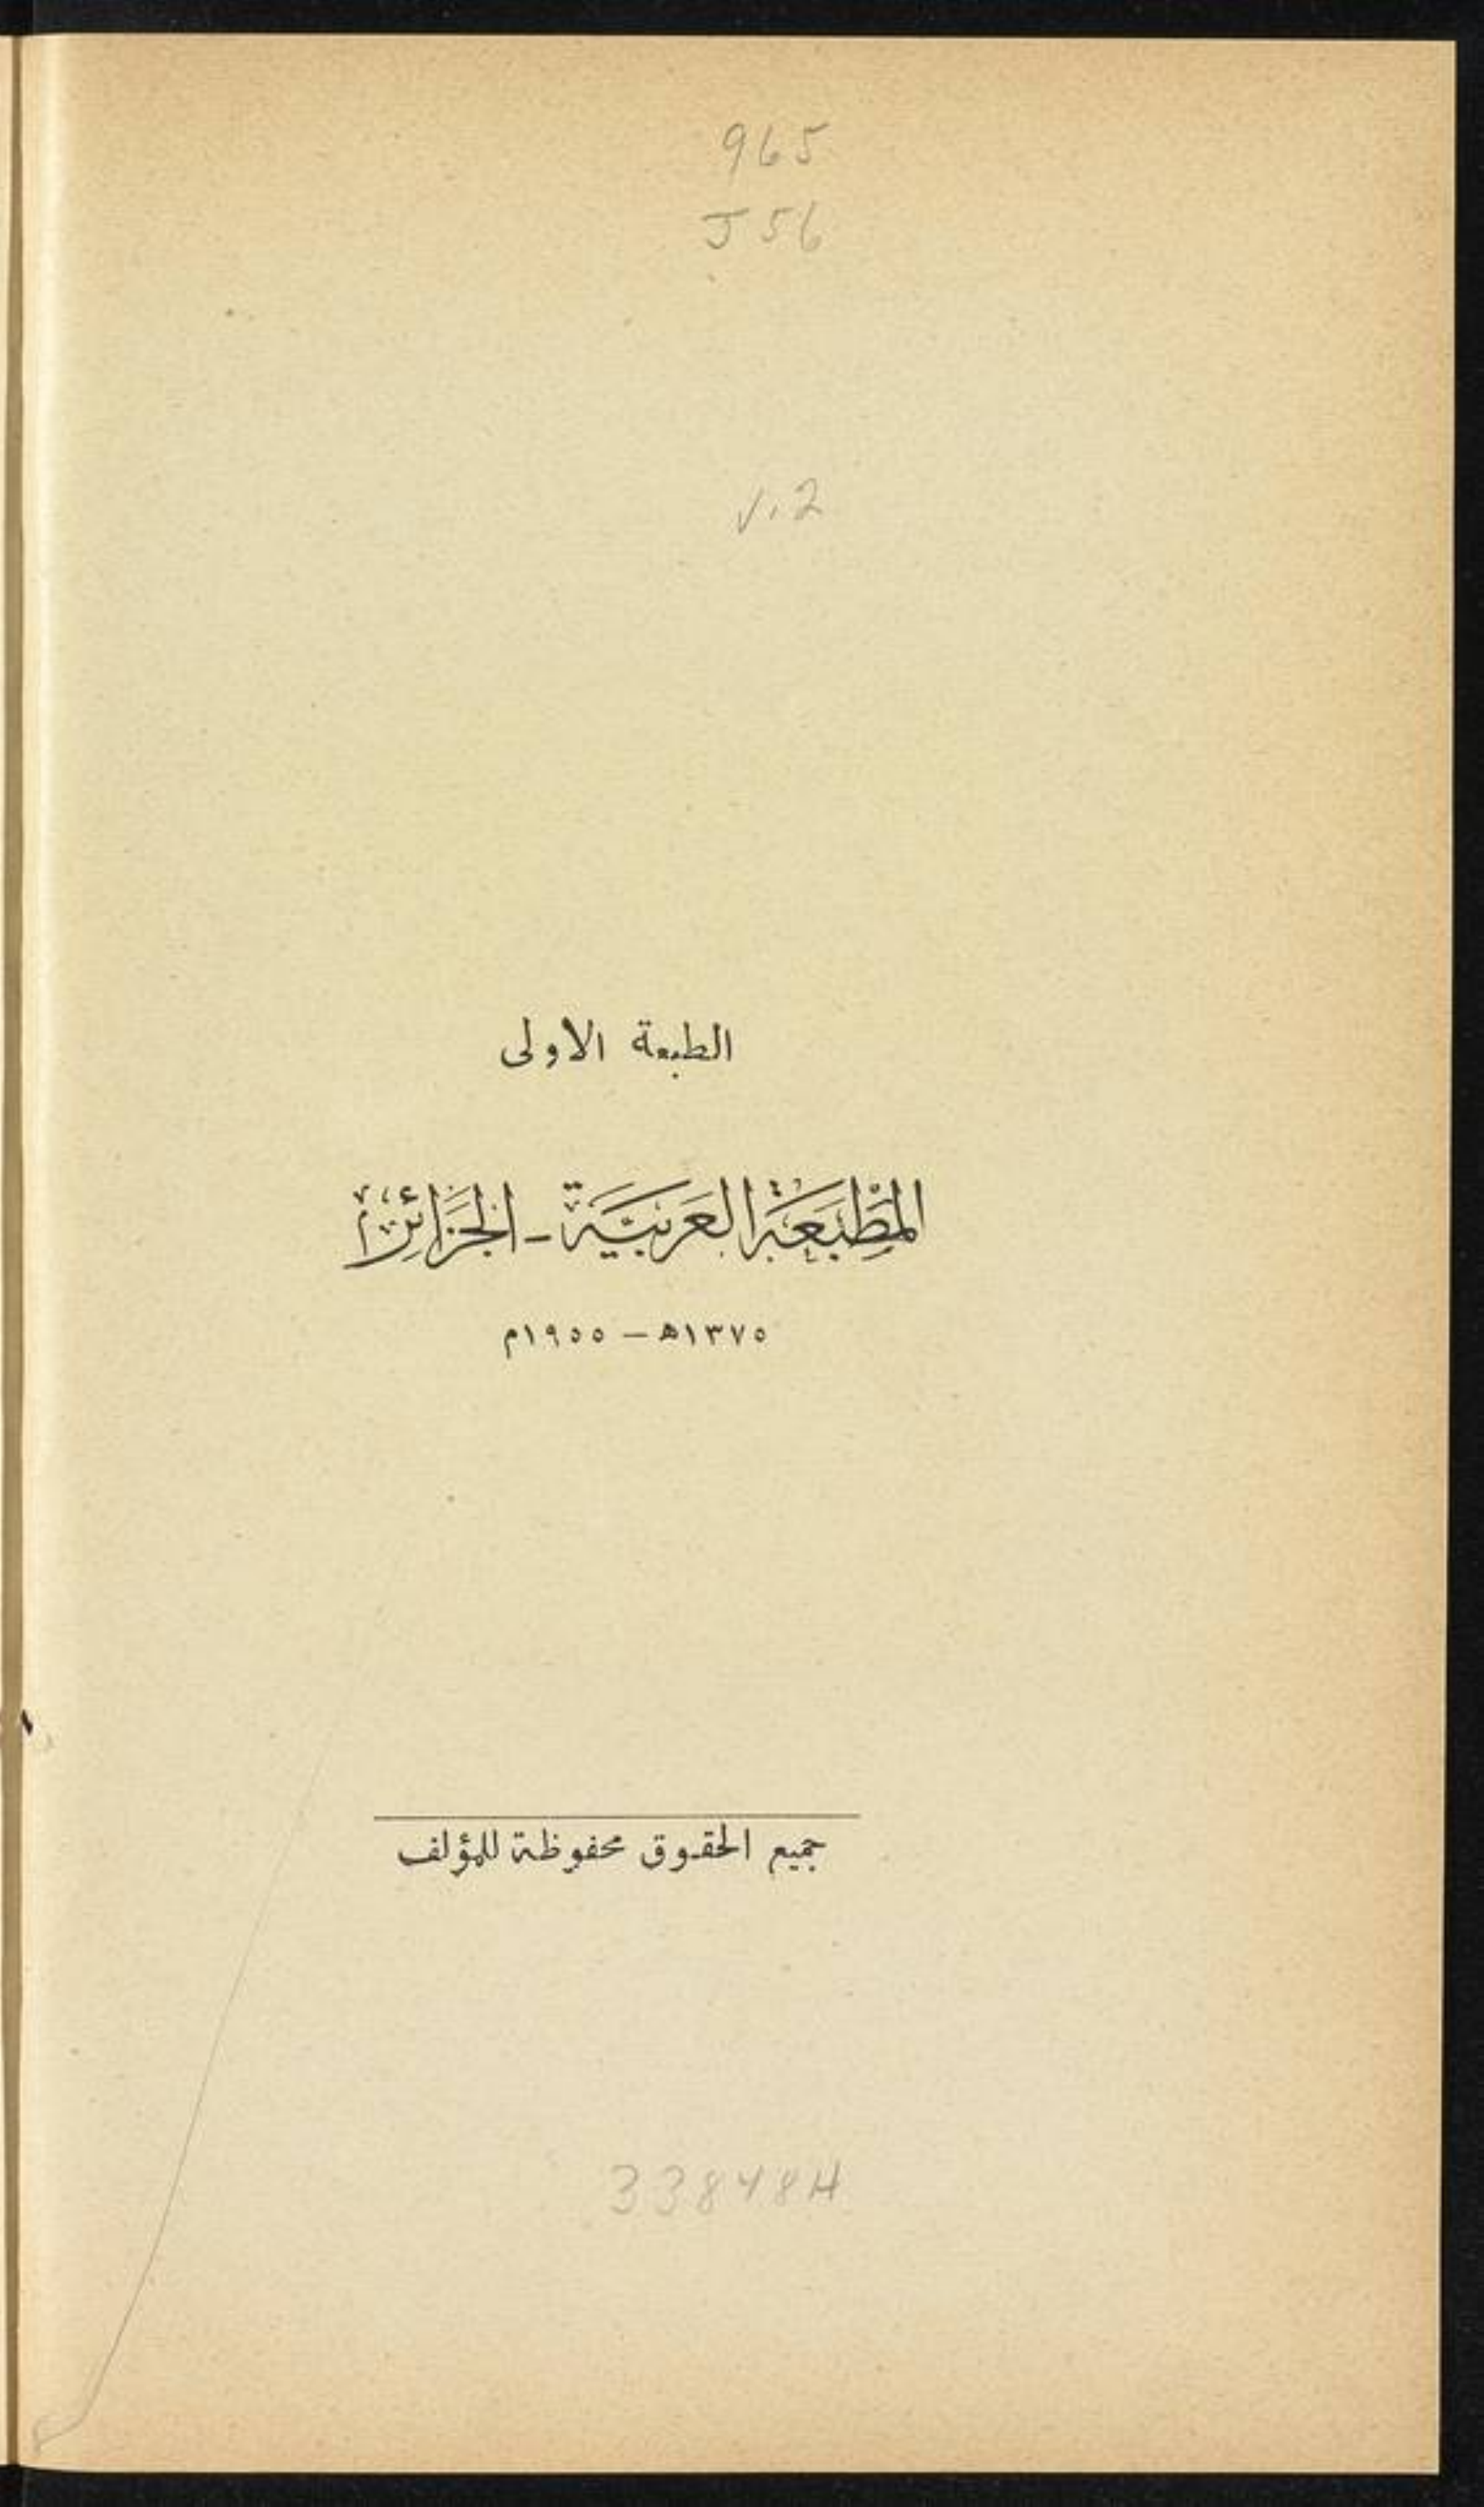 965
J56
v.2
الطبعة الاولى
المَطْبَعَة العَرَبيَّة - الجَزَائِر
١٣٧٥ه – ١٩٥٥م
جميع الحقوق محفوظة للمؤلف
33848H